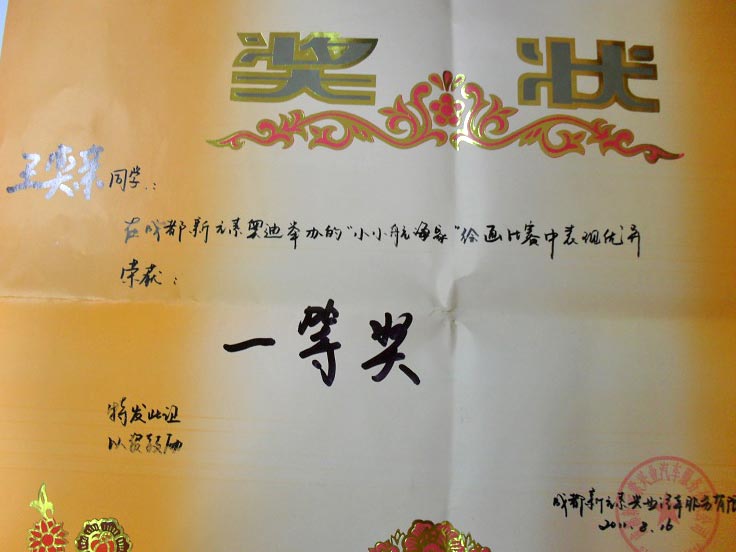 奖状
王奕茉同学:
在成都新元素奥迪举办的"小小航海家"绘画比赛中表现优异
荣获:
一等奖
特发此证
以资鼓励
成都新元素兴业汽车服务有限
2011.8.16